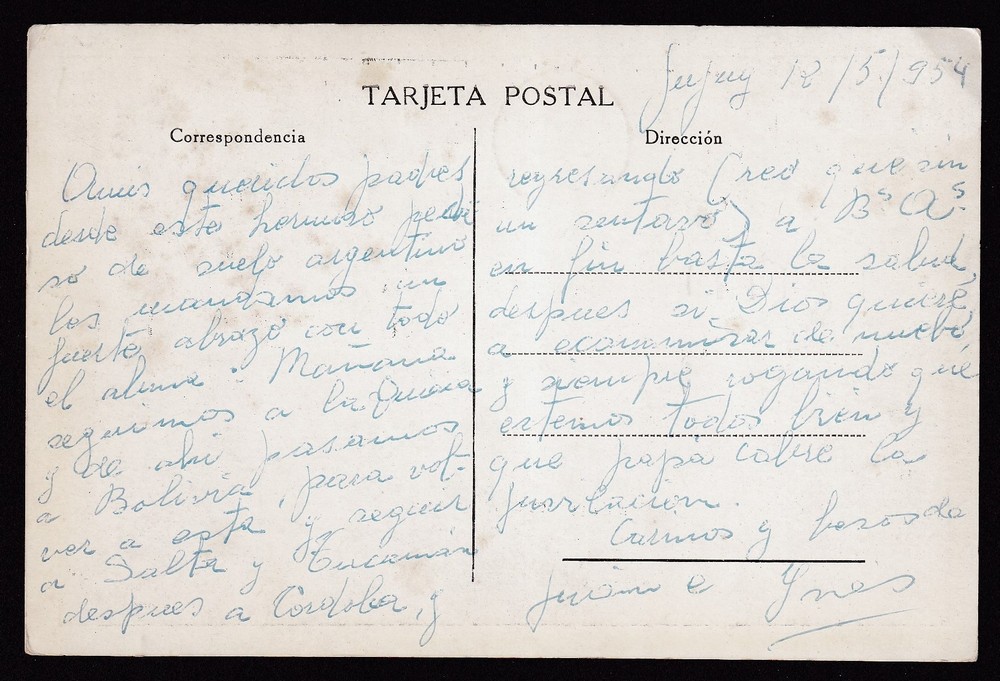 TARJETA POSTAL
Jujuy 12/5/954
Correspondencia
Dirección
A mis queridos padres
desde este hermoso peda
so de suelo argentino
les mandamos un
fuerte abrazo con todo
el alma. Mañana
seguimos a la Quiaca
y de ahi pasamos
a Bolivia, para vol-
ver a esta y seguir
a Salta y Tucumán
despues a Córdoba, y
regresando (creo que sin
un sentavo) a Bs As.
en fin basta la salud,
despues si Dios quiere,
a economizar de nuebo,
y siempre rogando que
estemos todos bien y
que papá cobre la
jubilacion.
Carinos y besos de
Juan e Ynés